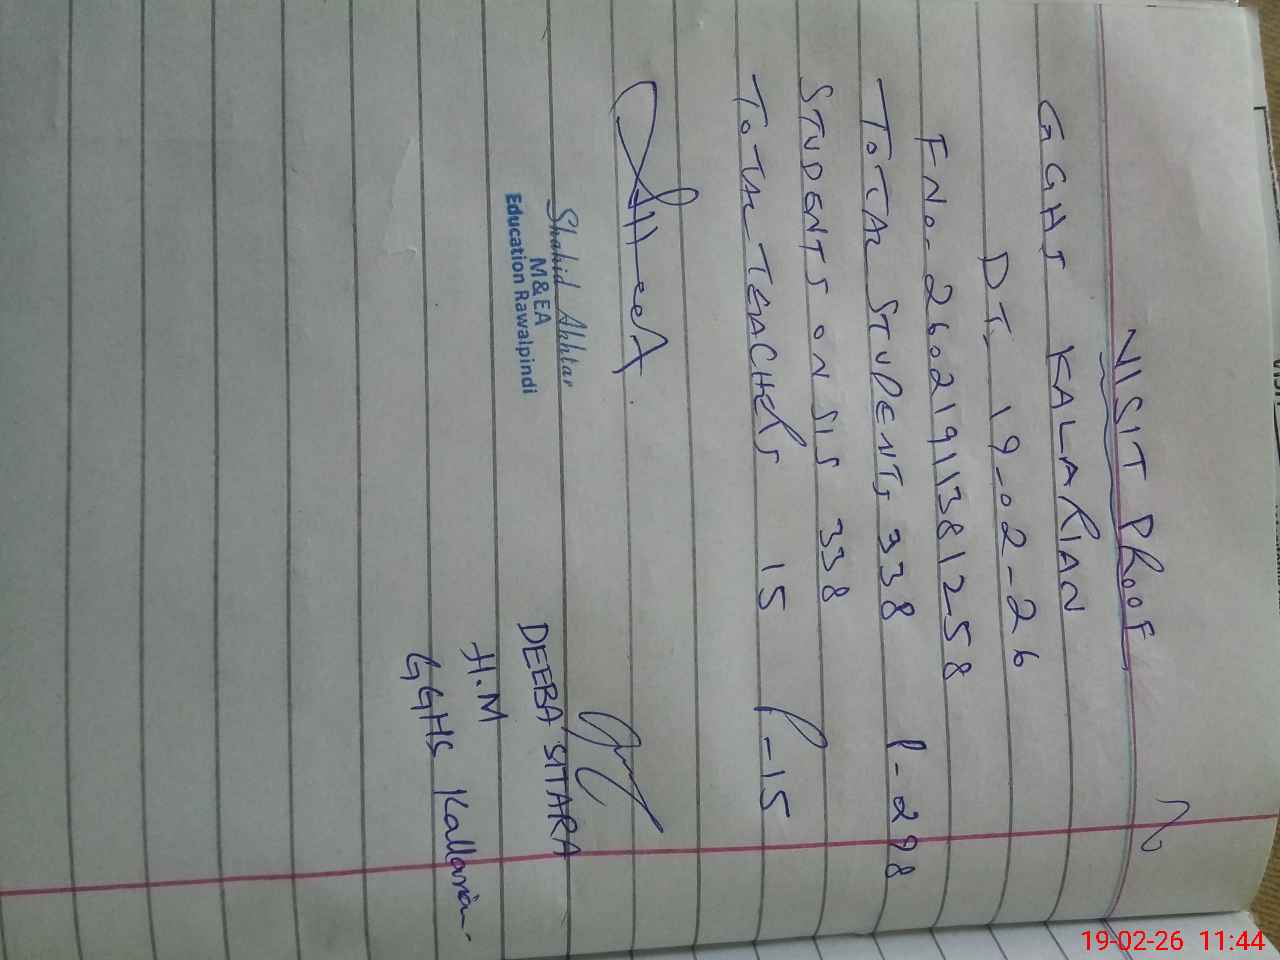 VISIT PROOF
GGHS KALARIAN
DT. 19-02-26
FNO- 260219113812-58
TOTAL STUDENTS 338 P-298
STUDENTS ON SIS 338
TOTAL TEACHERS 15 P-15
Shahid Akhtar
M&EA
Education Rawalpindi
DEEBA SITARA
H.M
GGHS Kallarian.
19-02-26 11:44